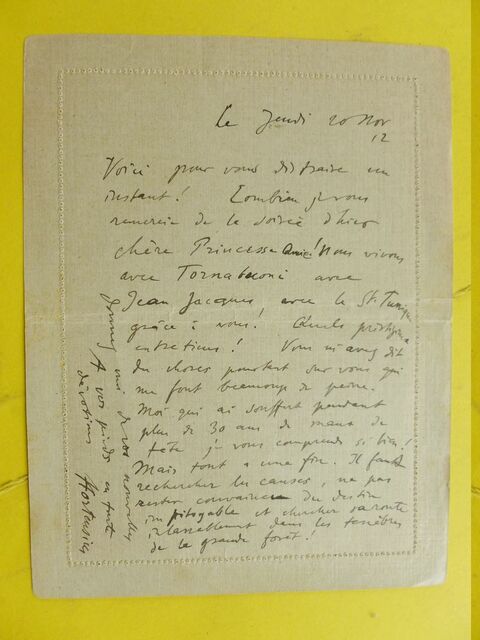 le Jeudi 20 Nov
12
Voici pour vous distraire un
instant! Combien je vous
remercie de la soirée d'hier
chère Princesse Amie! Nous vivons
avec Tornabuoni avec
Jean Jacques, avec le St.
grâce à vous! Quels prestigieux
entretiens! Vous m'avez dit
des choses pourtant sur vous qui
me font beaucoup de peine.
Moi qui ai souffert pendant
plus de 30 ans de maux de
tête je vous comprends si bien!
Mais tout a une fin. Il faut
rechercher les causes, ne pas
rester convaincu du destin
impitoyable et chercher sa route
inlassablement dans les ténèbres
de la grande forêt!
Donnez moi de vos nouvelles
A vos pieds en toute
dévotion